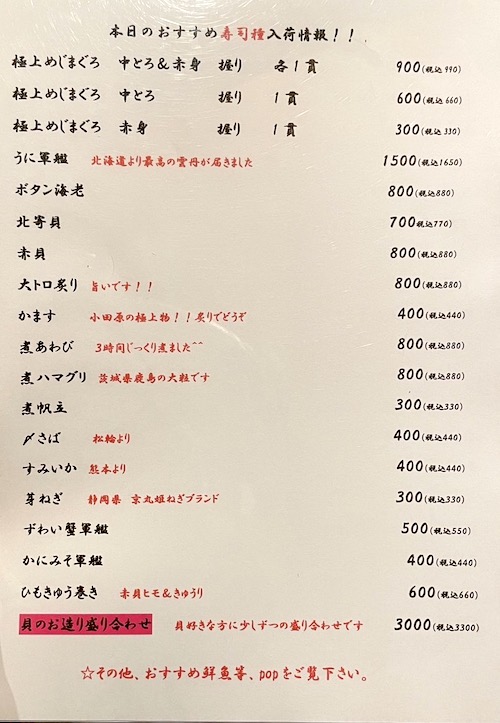 本日のおすすめ寿司種入荷情報！！
極上めじまぐろ 中とろ＆赤身 握り 各１貫 900(税込 990)
極上めじまぐろ 中とろ 握り １貫 600(税込 660)
極上めじまぐろ 赤身 握り １貫 300(税込 330)
うに軍艦 北海道より最高の雲丹が届きました 1500(税込1650)
ボタン海老 800(税込880)
北寄貝 700税込770)
赤貝 800(税込880)
大トロ炙り 旨いです！！ 800(税込880)
かます 小田原の極上物！！炙りでどうぞ 400(税込440)
煮あわび 3時間じっくり煮ました^^ 800(税込880)
煮ハマグリ 茨城県鹿島の大粒です 800(税込880)
煮帆立 300(税込330)
〆さば 松輪より 400(税込440)
すみいか 熊本より 400(税込440)
芽ねぎ 静岡県 京丸姫ねぎブランド 300(税込330)
ずわい蟹軍艦 500(税込550)
かにみそ軍艦 400(税込440)
ひもきゅう巻き 赤貝ヒモ＆きゅうり 600(税込660)
貝のお造り盛り合わせ 貝好きな方に少しずつの盛り合わせです 3000(税込3300)
☆その他、おすすめ鮮魚等、popをご覧下さい。